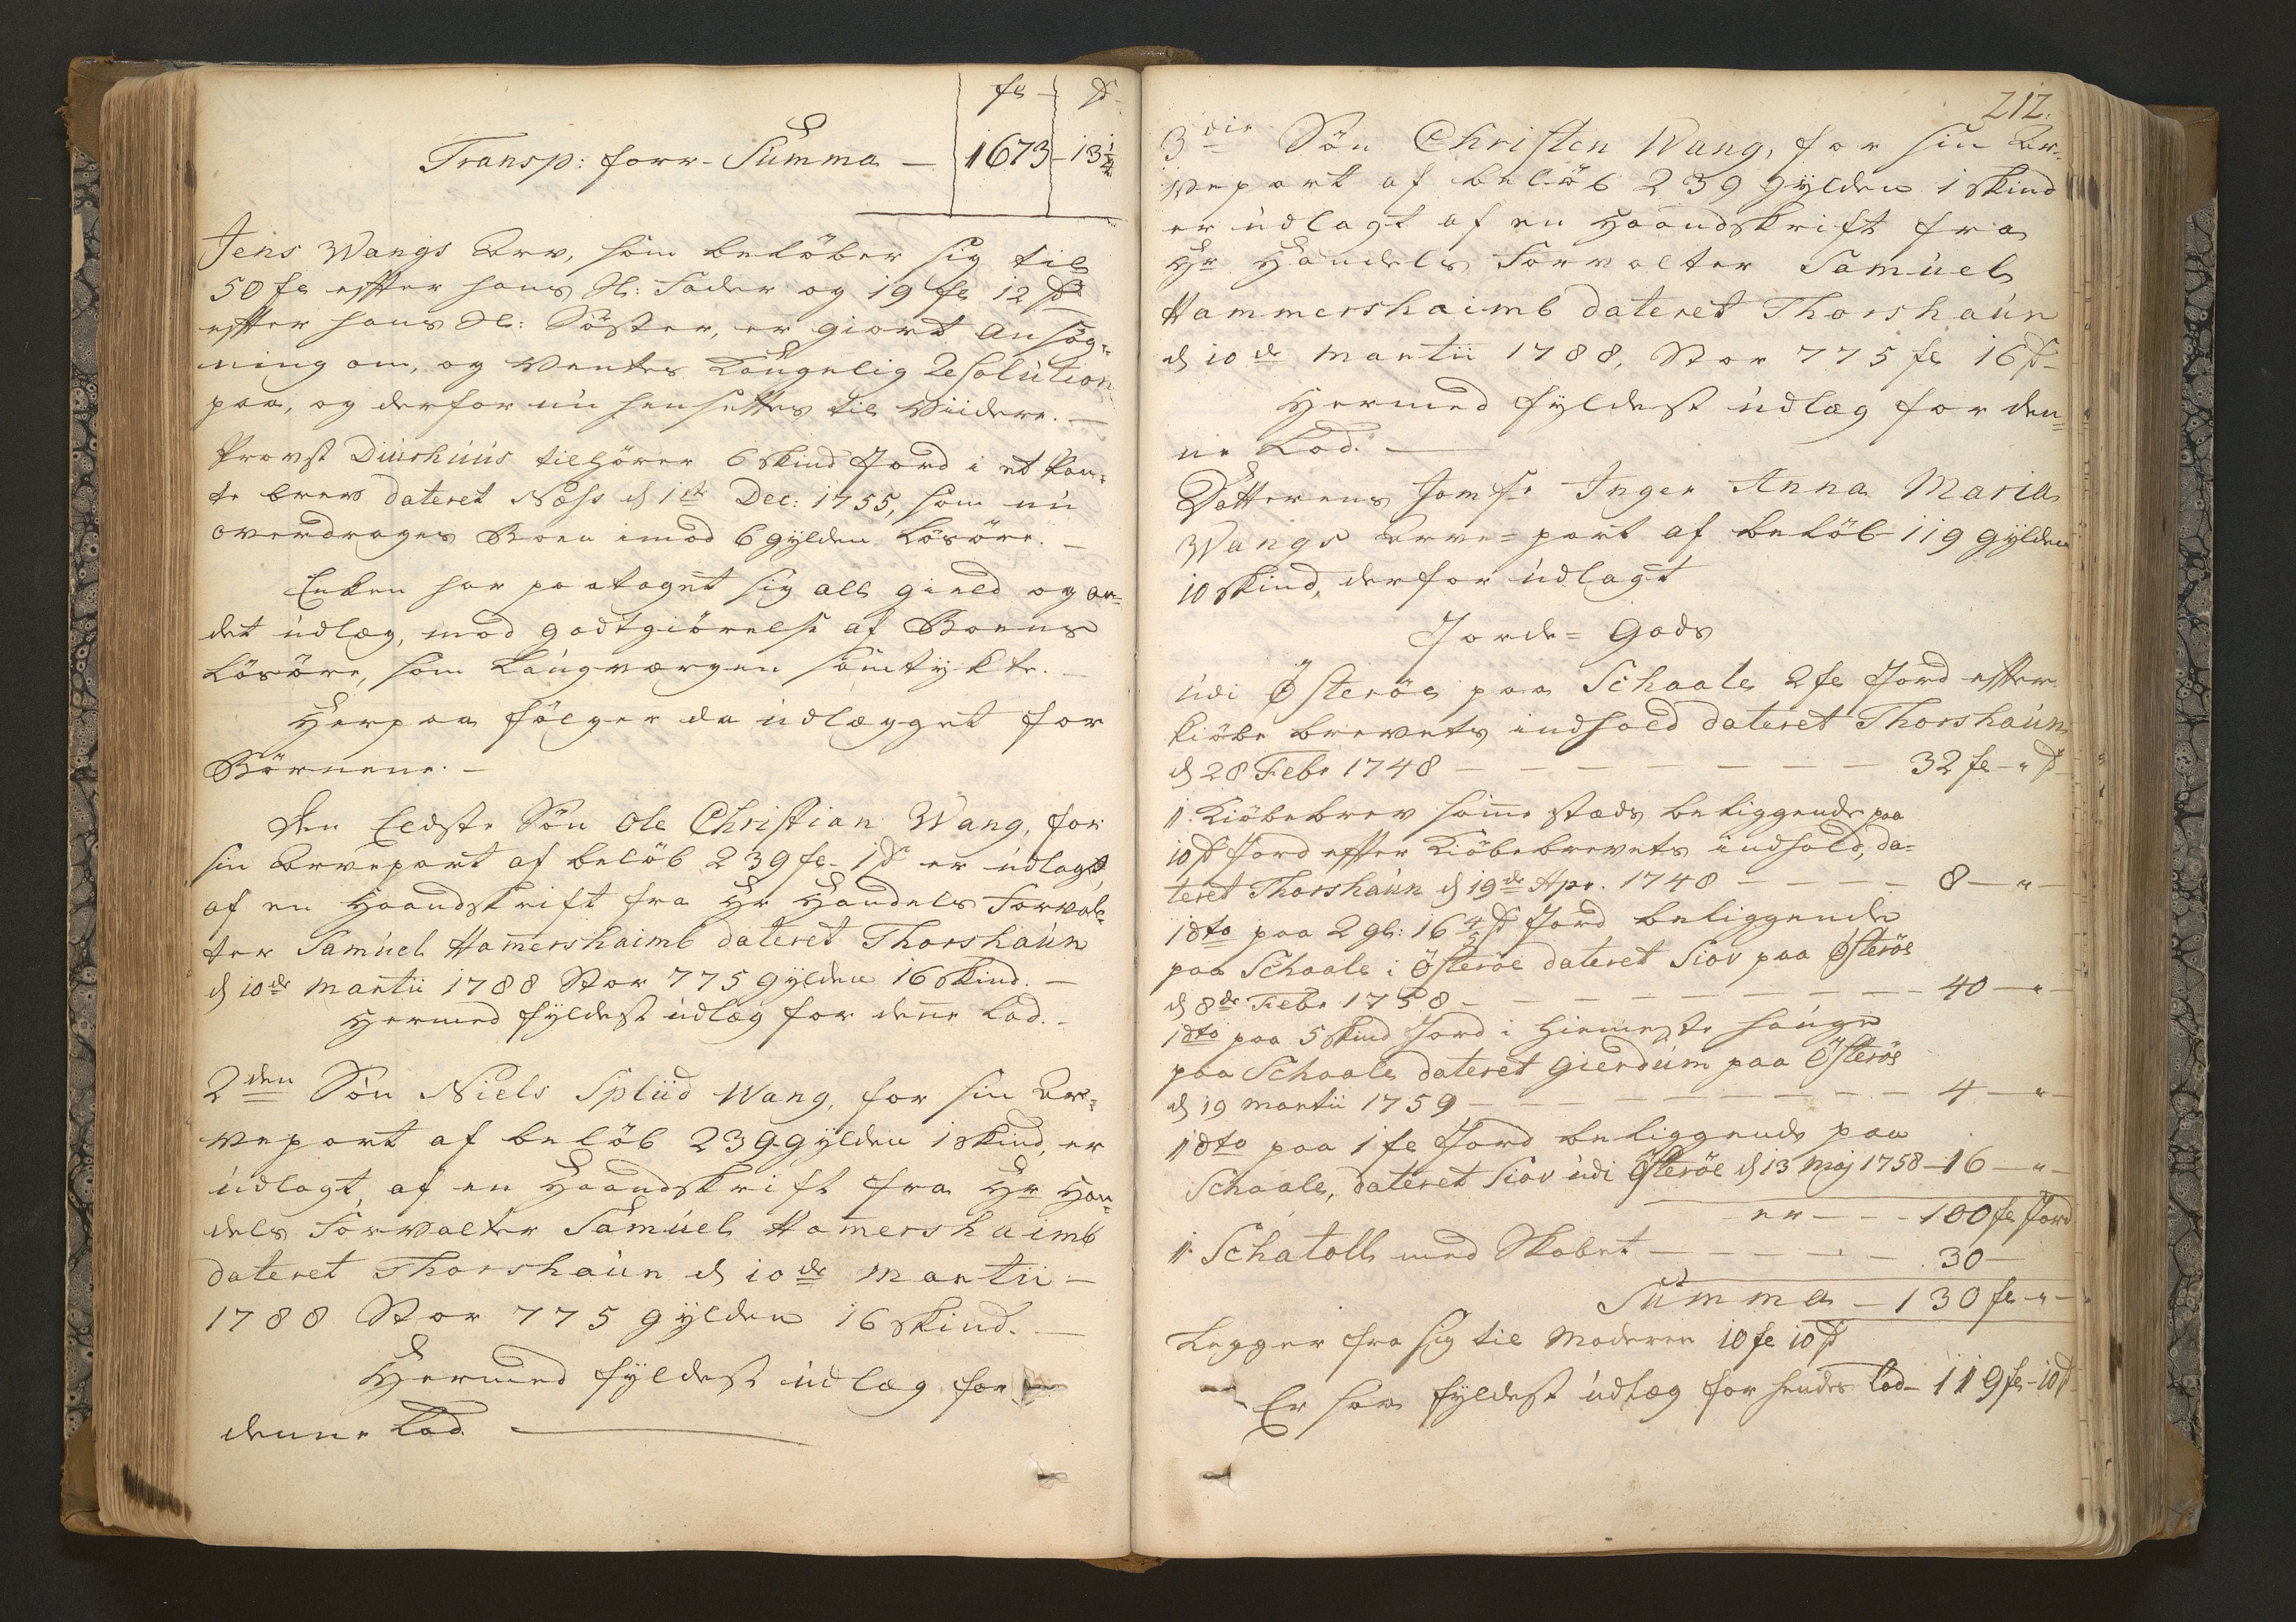 fl – ß
Transp: forr. Summa – 1673 – 13 1/4
Jens Wangs Arv, som beløber sig til
50 fl efter hans Sl: Fader og 19 fl 12 ß
efter hans Sl: Søster, er giort Ansøg=
ning om, og Ventes Kongelig Resolution
paa, og derfor nu hensettes til Viidere. –
Provst Diurhuus tilhører 6 Skind Jord i et Pan=
te brev dateret Næss d 1ste Dec: 1755, som nu
overdrages Boen imod 6 gylden Løsøre. –
Enken har paataget sig all gield og an=
det udlæg, mod godtgiørelse af Boens
Løsøre, som Laugværgen samtykte. –
Herpaa følger da udlægget for
Børnene. –
Den Eldste Søn Ole Christian Wang, for
sin Arvepart af beløb 239 fl – 1 ß er udlagt
af en Haandskrift fra Hr Handels Forval=
ter Samuel Hamershaimb dateret Thorshaun
d 10de Martii 1788 Stor 775 gylden 16 Skind. –
Hermed fyldest udlæg for dene Lod. –
2den Søn Niels Spliid Wang, for sin Ar=
vepart af beløb 239 gylden 1 Skind, er
udlagt, af en Haandskrift fra Hr Han=
dels Forvalter Samuel Hamershaimb
dateret Thorshaun d 10de Martii –
1788 Stor 775 gylden 16 Skind. –
Hermed fyldest udlæg for
denne Lod
212.
3die Søn Christen Wang, for sin Ar=
vepart af beløb 239 gylden 1 Skind
er udlagt af en Haandskrift fra
Hr Handels Forvalter Samuel
Hammershaimb dateret Thorshaun
d 10de Martii 1788, Stor 775 fl 16 ß –
Hermed fyldest udlæg for den=
ne Lod. –
Datterens Jomfr Inger Anna Maria
Wangs Arve=part af beløb 119 gylden
10 Skind, derfor udlagt
Jorde= Gods
udi Østerøe paa Schaale 2 fl Jord efter
kiøbe brevets indhold dateret Thorshaun
d 28 Febr 1748 – – – – – – – 32 fl – " ß
1 Kiøbebrev same steds beliggende paa
10 ß Jord efter Kiøbebrevets indhold, da=
teret Thorshaun d 19de Apr. 1748 – – – – 8 – " –
1 dto paa 2 gl: 16 4/5 ß Jord beliggende
paa Schaale i Østerøe dateret Siov paa Østerøe
d 8de Febr 1758 – – – – – – – – 40 – " –
1 dto paa 5 Skind Jord i Hiemeste hauge
paa Schaale dateret Gierdum paa Østerøe
d 19 Martii 1759 – – – – – – – – 4 – " –
1 dto paa 1 fl Jord beliggende paa
Schaale, dateret Siov udi Østerøe d 13 Maj 1758 – 16 – " –
er – – – 100 fl Jord
1 Schatoll med Skabet – – – – – 30 –
Summa – 130 fl – " –
Legger fra sig til Moderen 10 fl 10 ß
Er saa fyldest udlæg for hendes Lod – 119 fl – 10 ß